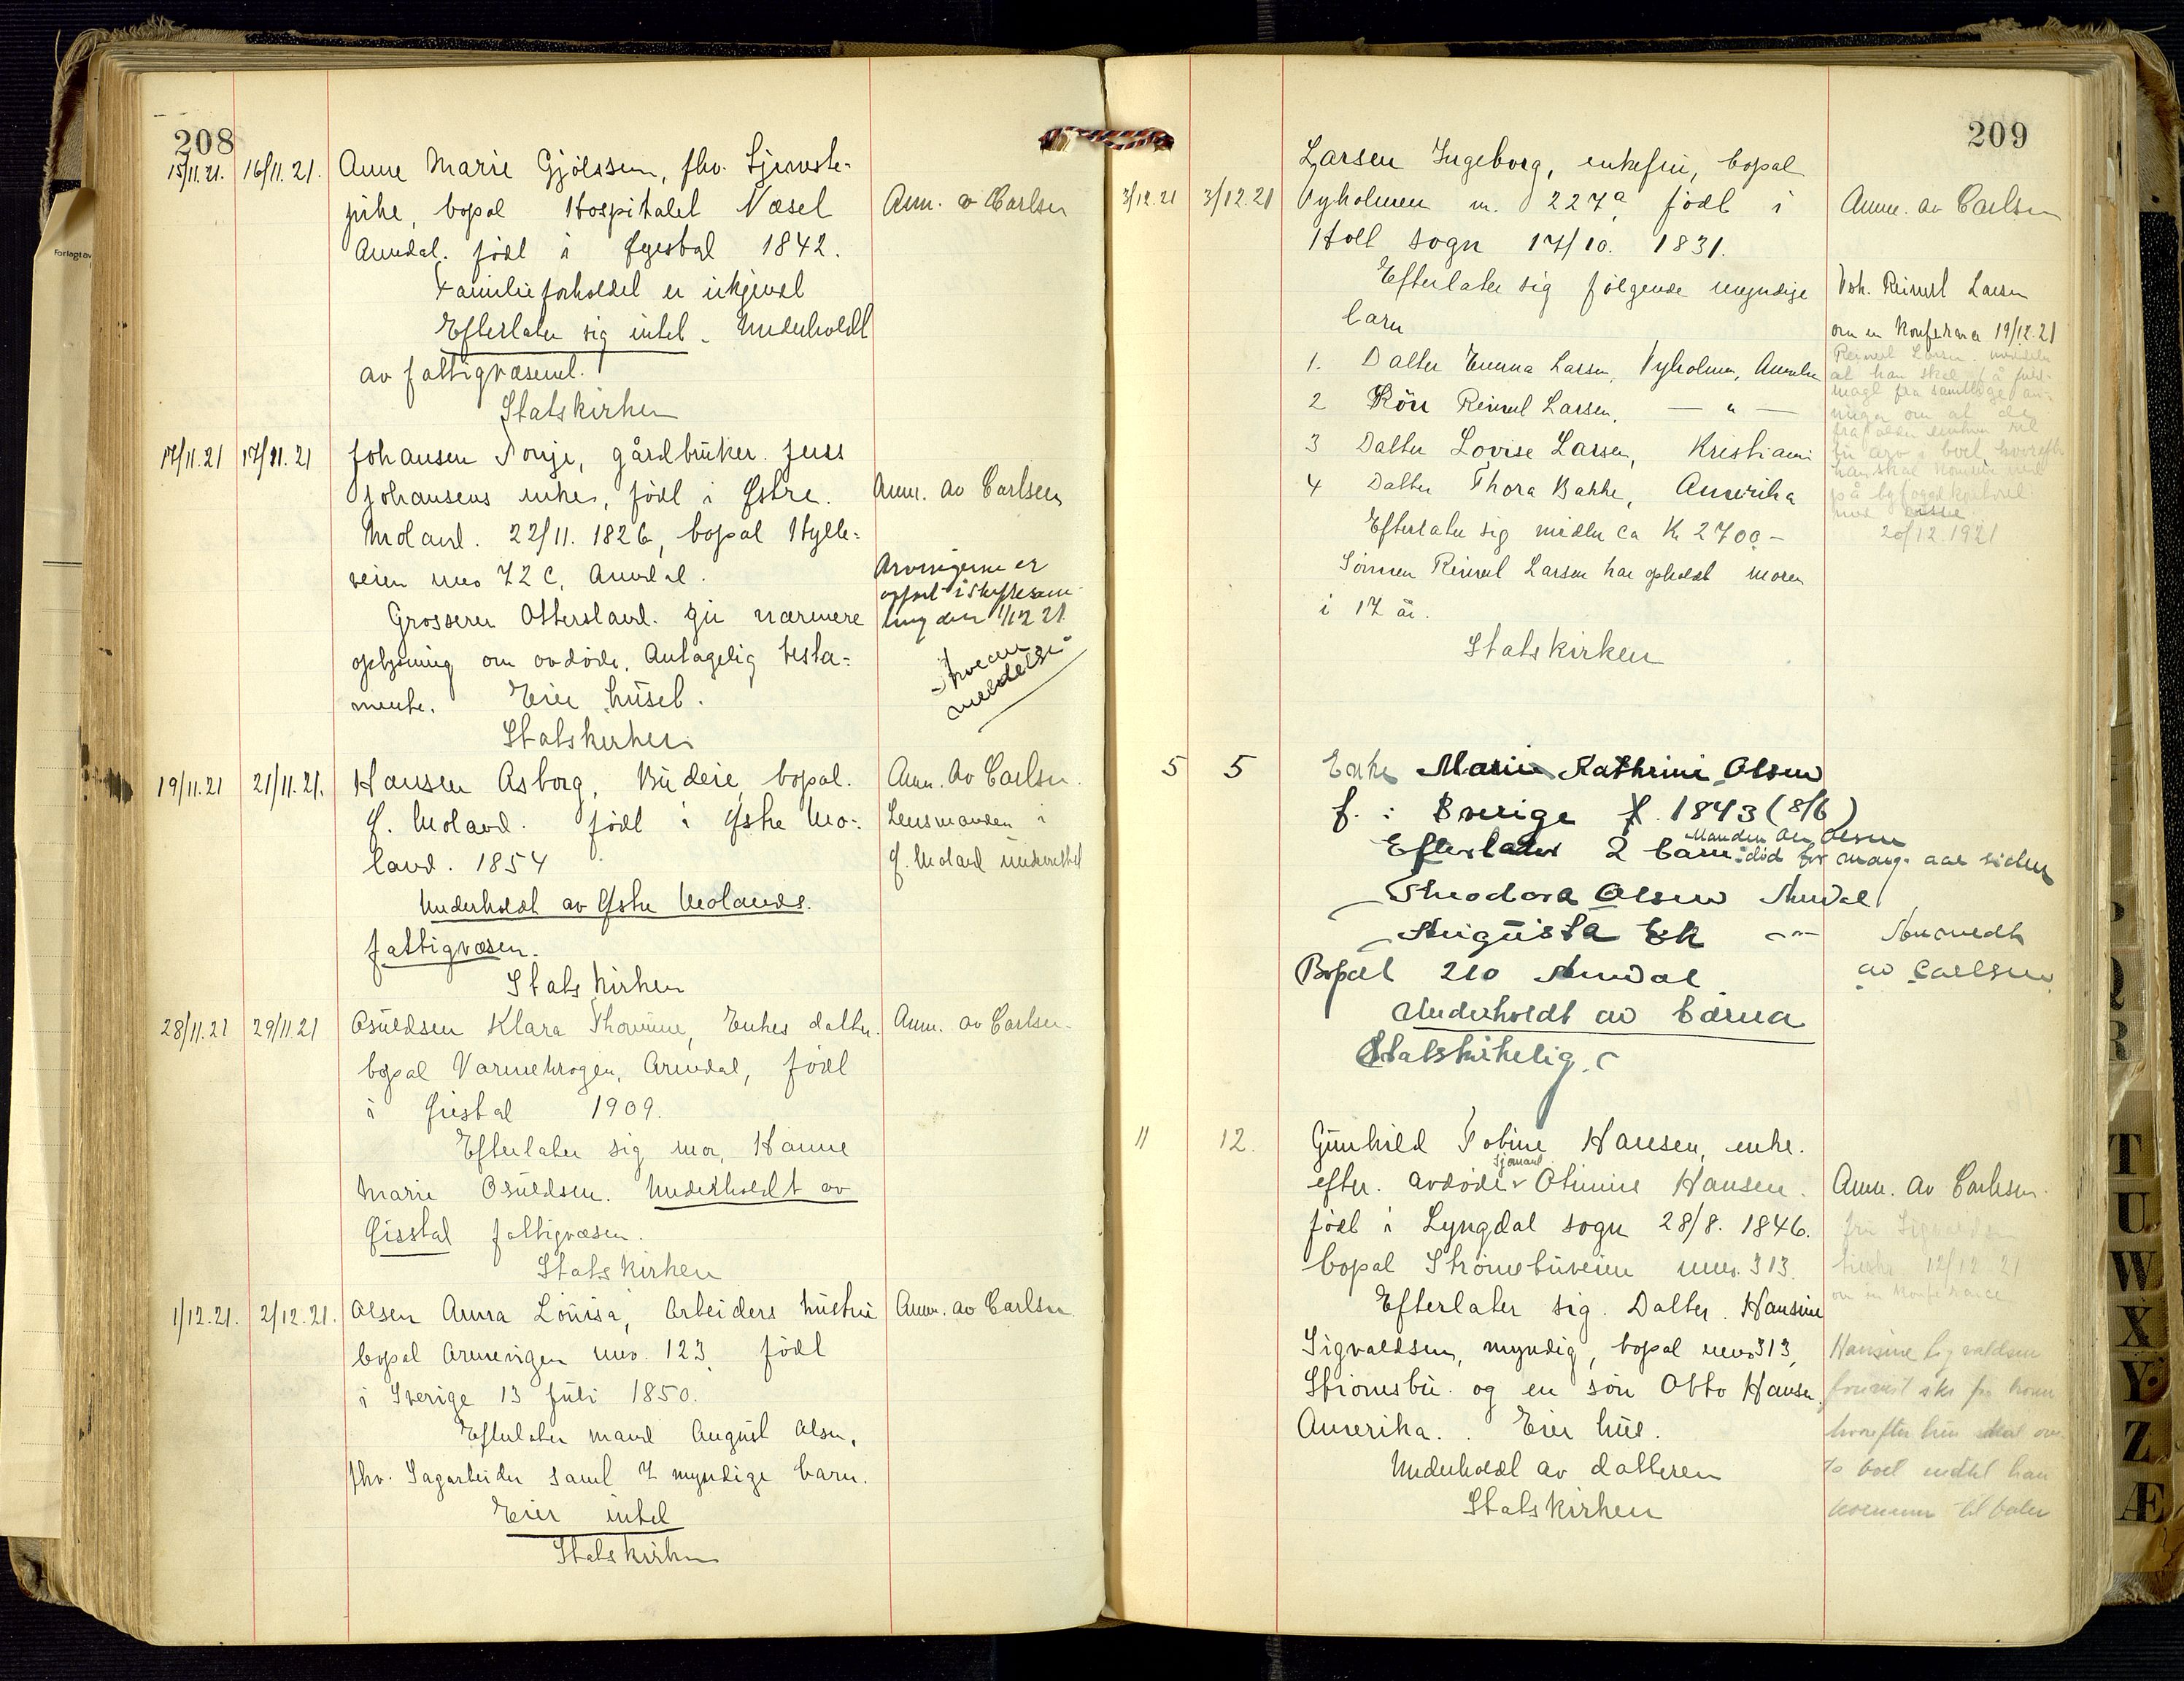 208
15/11.21. 16/11.21. Anne Marie Gjølssen, fhv. tjeneste-
pike, bopal Hospitalet Næset Anm. av Carlsen
Arendal. født i Øyestad 1842.
Familieforholdet er ukjendt
Efterlater sig intet. Underholdt
av fattigvæsenet.
Statskirken
17/11.21 17/11.21 Johansen Tonje, gårdbruker Jens
Johansens enke, født i Østre. Anm. av Carlsen
Moland. 22/11. 1826, bopal Hylle-
veien nr 72 C, Arendal. Arvingerne er
opført i skiftesam-
Grosserer Ottersland. gir nærmere ling den 1/12 21
oplysning om avdøde. Antagelig testa-
mente. Eier huset.
meldelse
Statskirken
19/11.21 21/11.21. Hansen Asborg, Budeie, bopal. Anm. av Carlsen.
Ø. Moland. født i Østre Mo- Lensmanden i
land. 1854 Ø. Moland underrettet
Underholdt av Østre Molands.
fattigvæsen.
Statskirken
28/11.21 29/11.21 Osuldsen Klara Thovine, Enkes datter. Anm. av Carlsen.
bopal Varmekrogen, Arendal, født
i Øiestad 1909.
Efterlater sig mor, Hanne
Marie Osuldsen. Underholdt av
Øiestad fattigvæsen.
Statskirken
1/12.21. 2/12.21. Olsen Anna Louisa, Arbeiders hustru Anm. av Carlsen
bopal Arnevigen nr. 123, født
i Sverige 13 juli 1850.
Efterlater mand August Olsen,
fhv. Sagarbeider samt 7 myndige barn.
Eier intet
Statskirken
209
Larsen Ingeborg, enkefru, bopal
3/12.21 3/12.21 Tyholmen nr. 227a født i Anm. av Carlsen
Holt sogn 17/10. 1831.
Efterlater sig følgende myndige Reinert Larsen
barn
om en Konferance 19/12.21
1. Datter Emma Larsen, Tyholmen, Arendal
2 Søn Reinert Larsen, — " —
3 Datter Lovise Larsen, Kristiania
4 Datter Thora Bakke, Amerika
Reinert Larsen. meddeler
at han skal få fuld-
magt fra samtlige
på byfogedkontoret
20/12.1921
Efterlater sig midler ca Kr 2700 -
Sønnen Reinert Larsen har opholdt moren
i 17 år.
Statskirken
5 5 Enke Marie Kathrine Olsen
f. : Sverige 1843 (8/6)
Manden Ole Olsen
Efterlader 2 barn : død for mange aar siden
Theodora Olsen Arendal
Augusta Ek — " — Anmeldt
Bopæl 210 Arendal av Carlsen
Underholdt av barna
Statskirkelig.
11 12. Gunhild Tobine Hansen, enke.
sjømand
efter. avdøde Otinius Hansen. Anm. av Carlsen.
født i Lyngdal sogn 28/8. 1846. fru Sigvaldsen
bopal Strømsbuveien nr. 313. 12/12 21
om en Konferance
Efterlater sig. Datter. Hansine
Sigvaldsen, myndig, bopal nr 313, Hansine Sigvaldsen
Strømsbu. og en søn Otto Hansen
Amerika. . Eier hus. hvorefter hun skal over-
Underholdt av datteren ta boet indtil han
Statskirken kommer tilbake
T
U
W
X
Y
Z
Æ